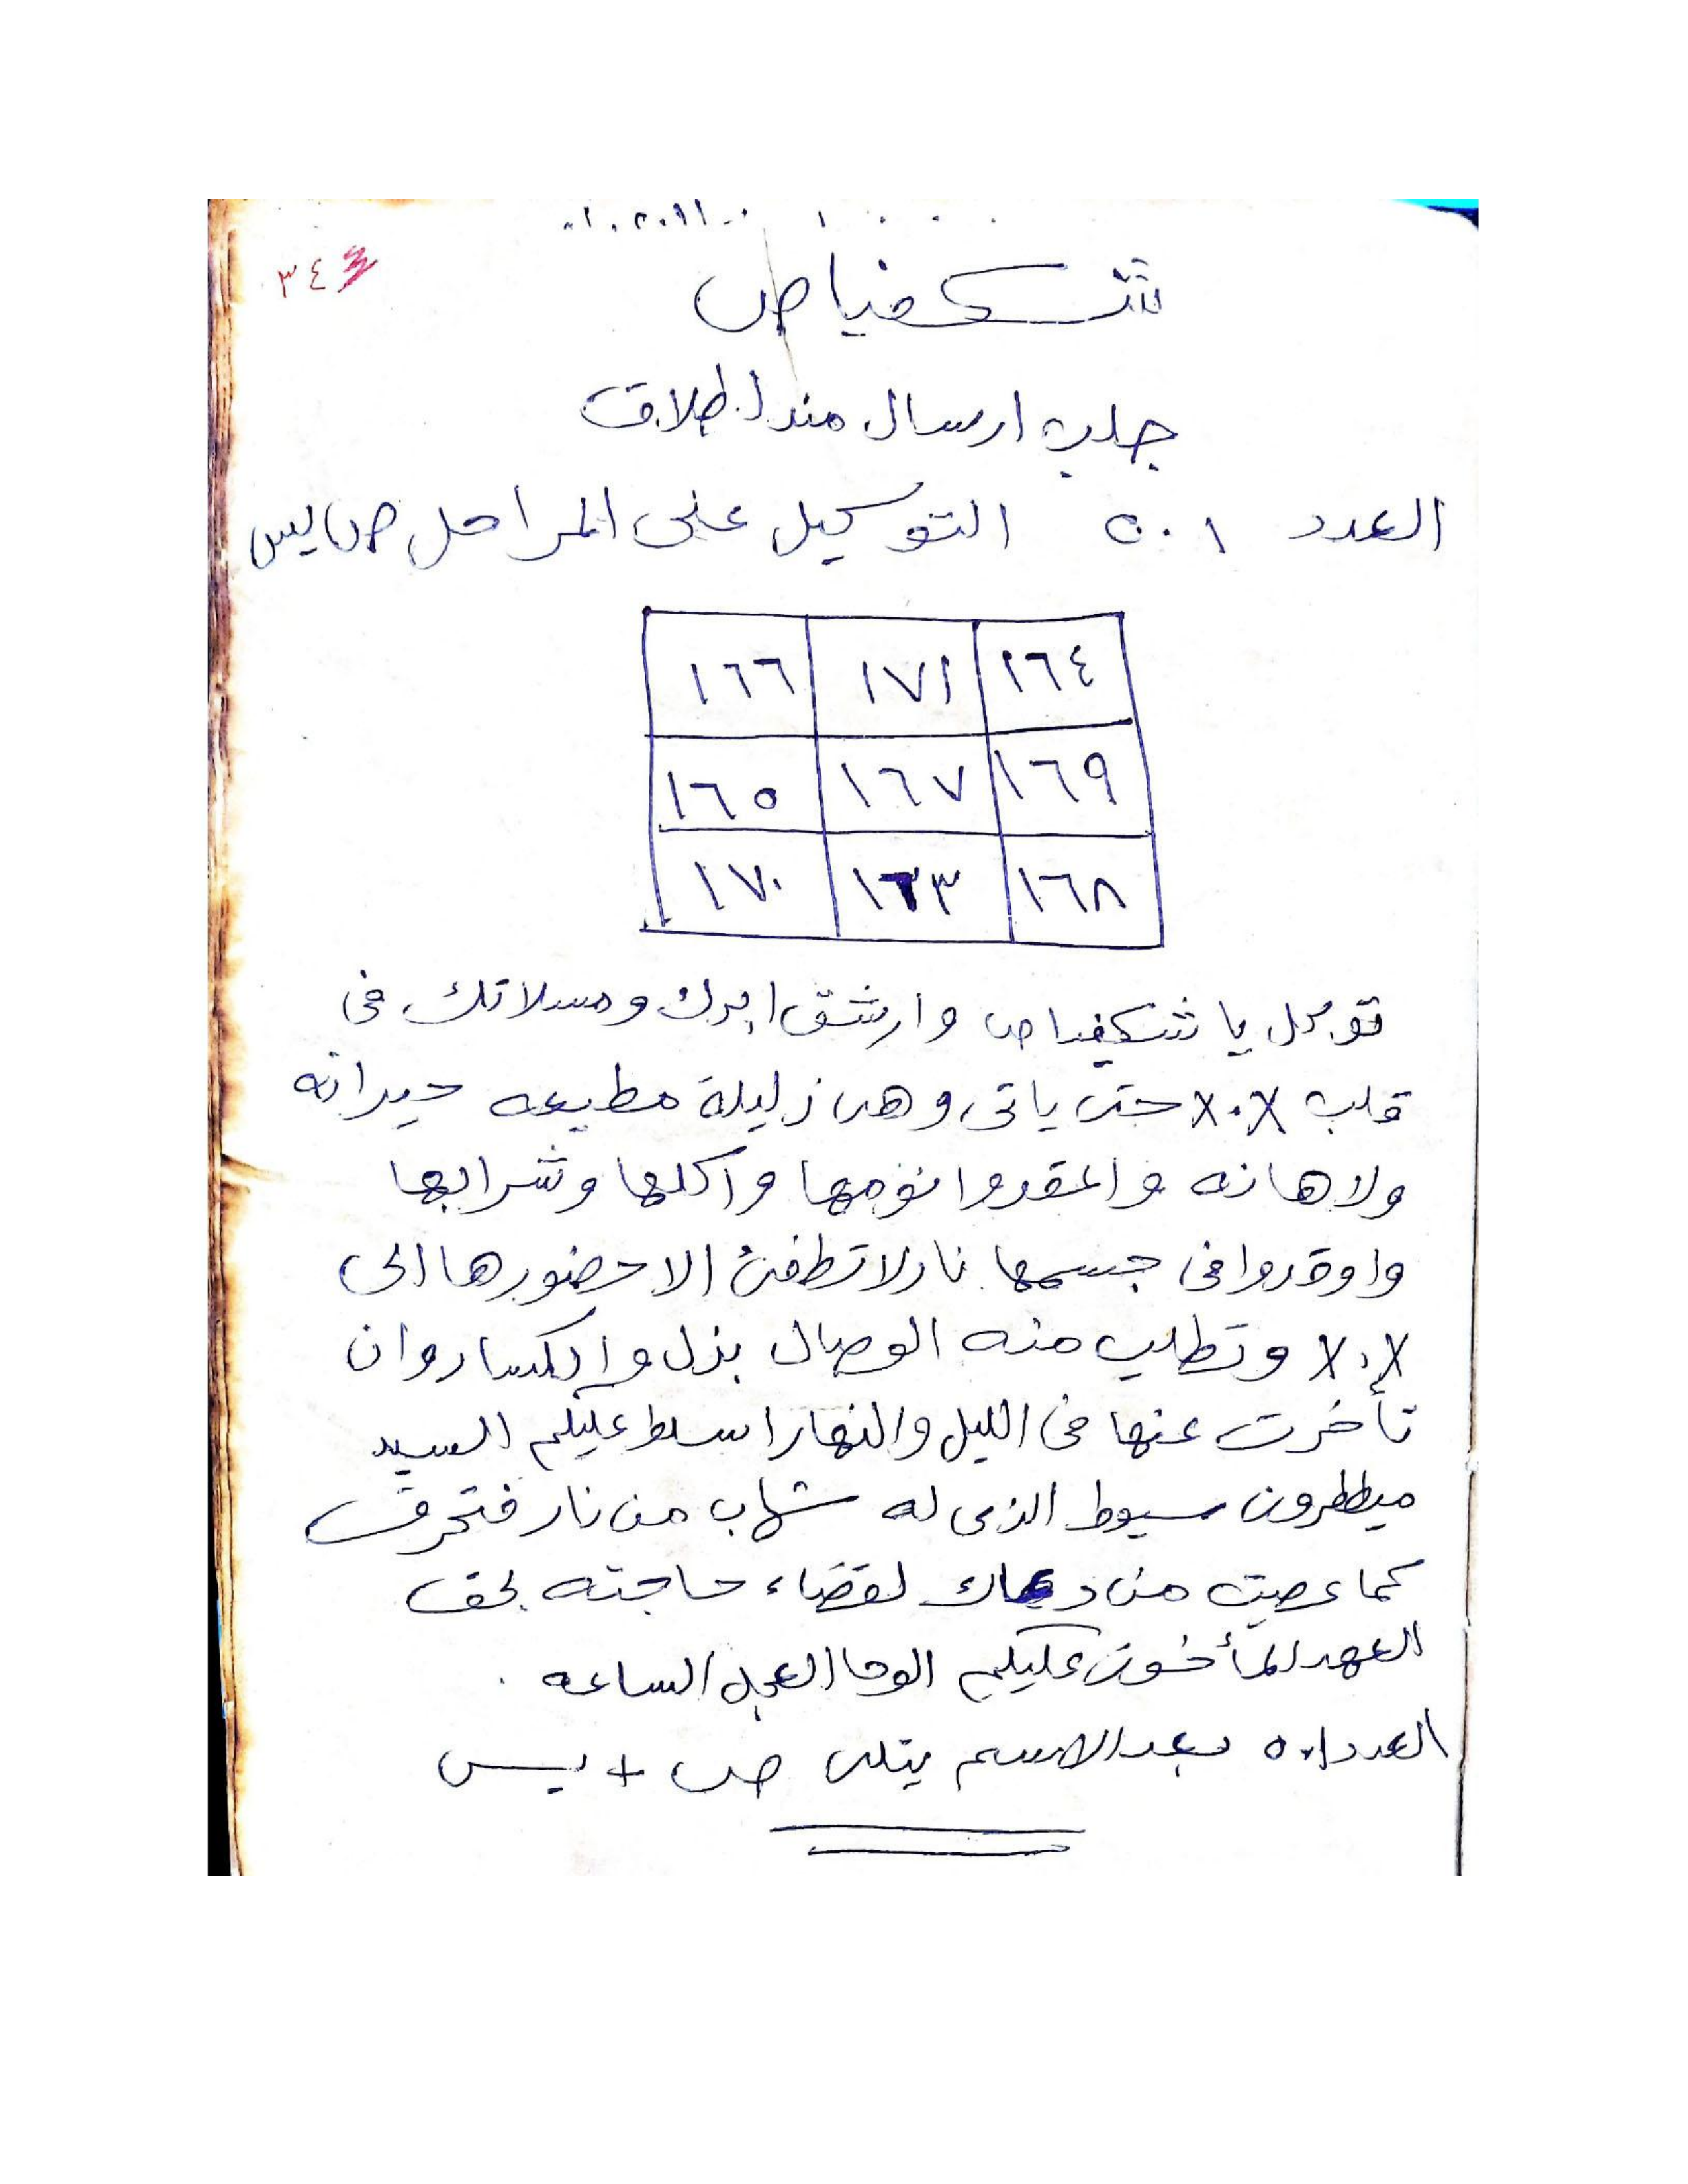 ٣٤
شكفياص
جلب ارسال مندل طلاق
العدد ٥٠١ التوكيل على المراحل ص يس
١٦٦ ١٧١ ١٦٤
١٦٥ ١٦٧ ١٦٩
١٧٠ ١٦٣ ١٦٨
توكل يا شكفياص وارشق ابرك ومسلاتك فى
قلب X.X حتى ياتى وهى زليلة مطيعه حيرانه
ولاهانه واعقدوا نومها واكلها وشرابها
واوقدوا فى جسمها نار لا تطفئ الا حضورها الى
X.X وتطلب منه الوصال بزل وانكسار وان
تأخرت عنها فى الليل والنهار اسلط عليكم السيد
ميططرون سيوط الذى له شهاب من نار فتحرق
كما عصيت من دعاك لقضاء حاجته بحق
العهد المأخوذ عليكم الوحا العجل الساعه
العدد ٥٠١ بعد الاسم يتلى ص + يس